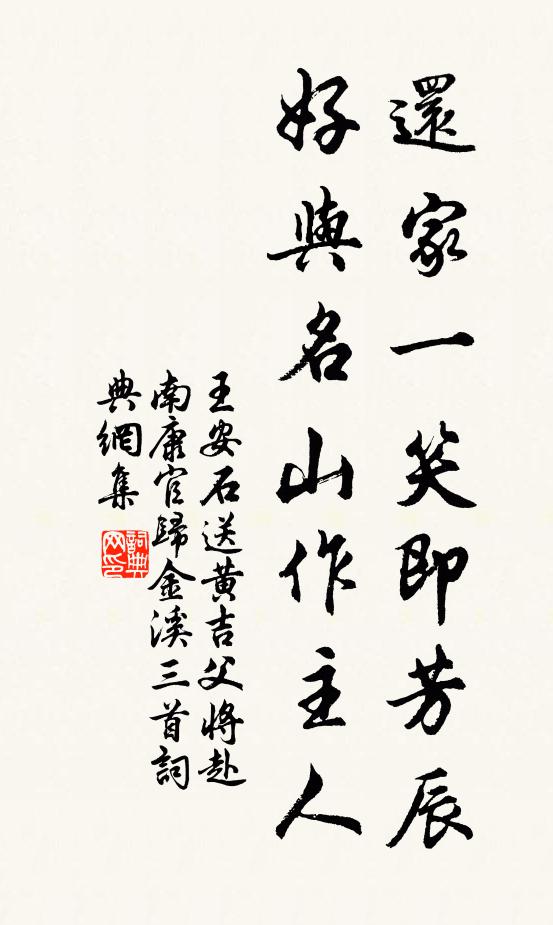 還家一笑即芳辰
好與名山作主人
王安石送黃吉父將赴
南康官歸金溪三首詞
典網集
詞典网印